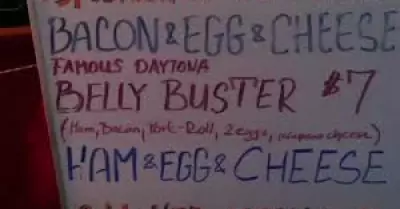 BACON & EGG & CHEESE
FAMOUS DAYTONA
BELLY BUSTER $7
(Ham, Bacon, Pork-Roll, 2 eggs, cheese)
HAM & EGG & CHEESE